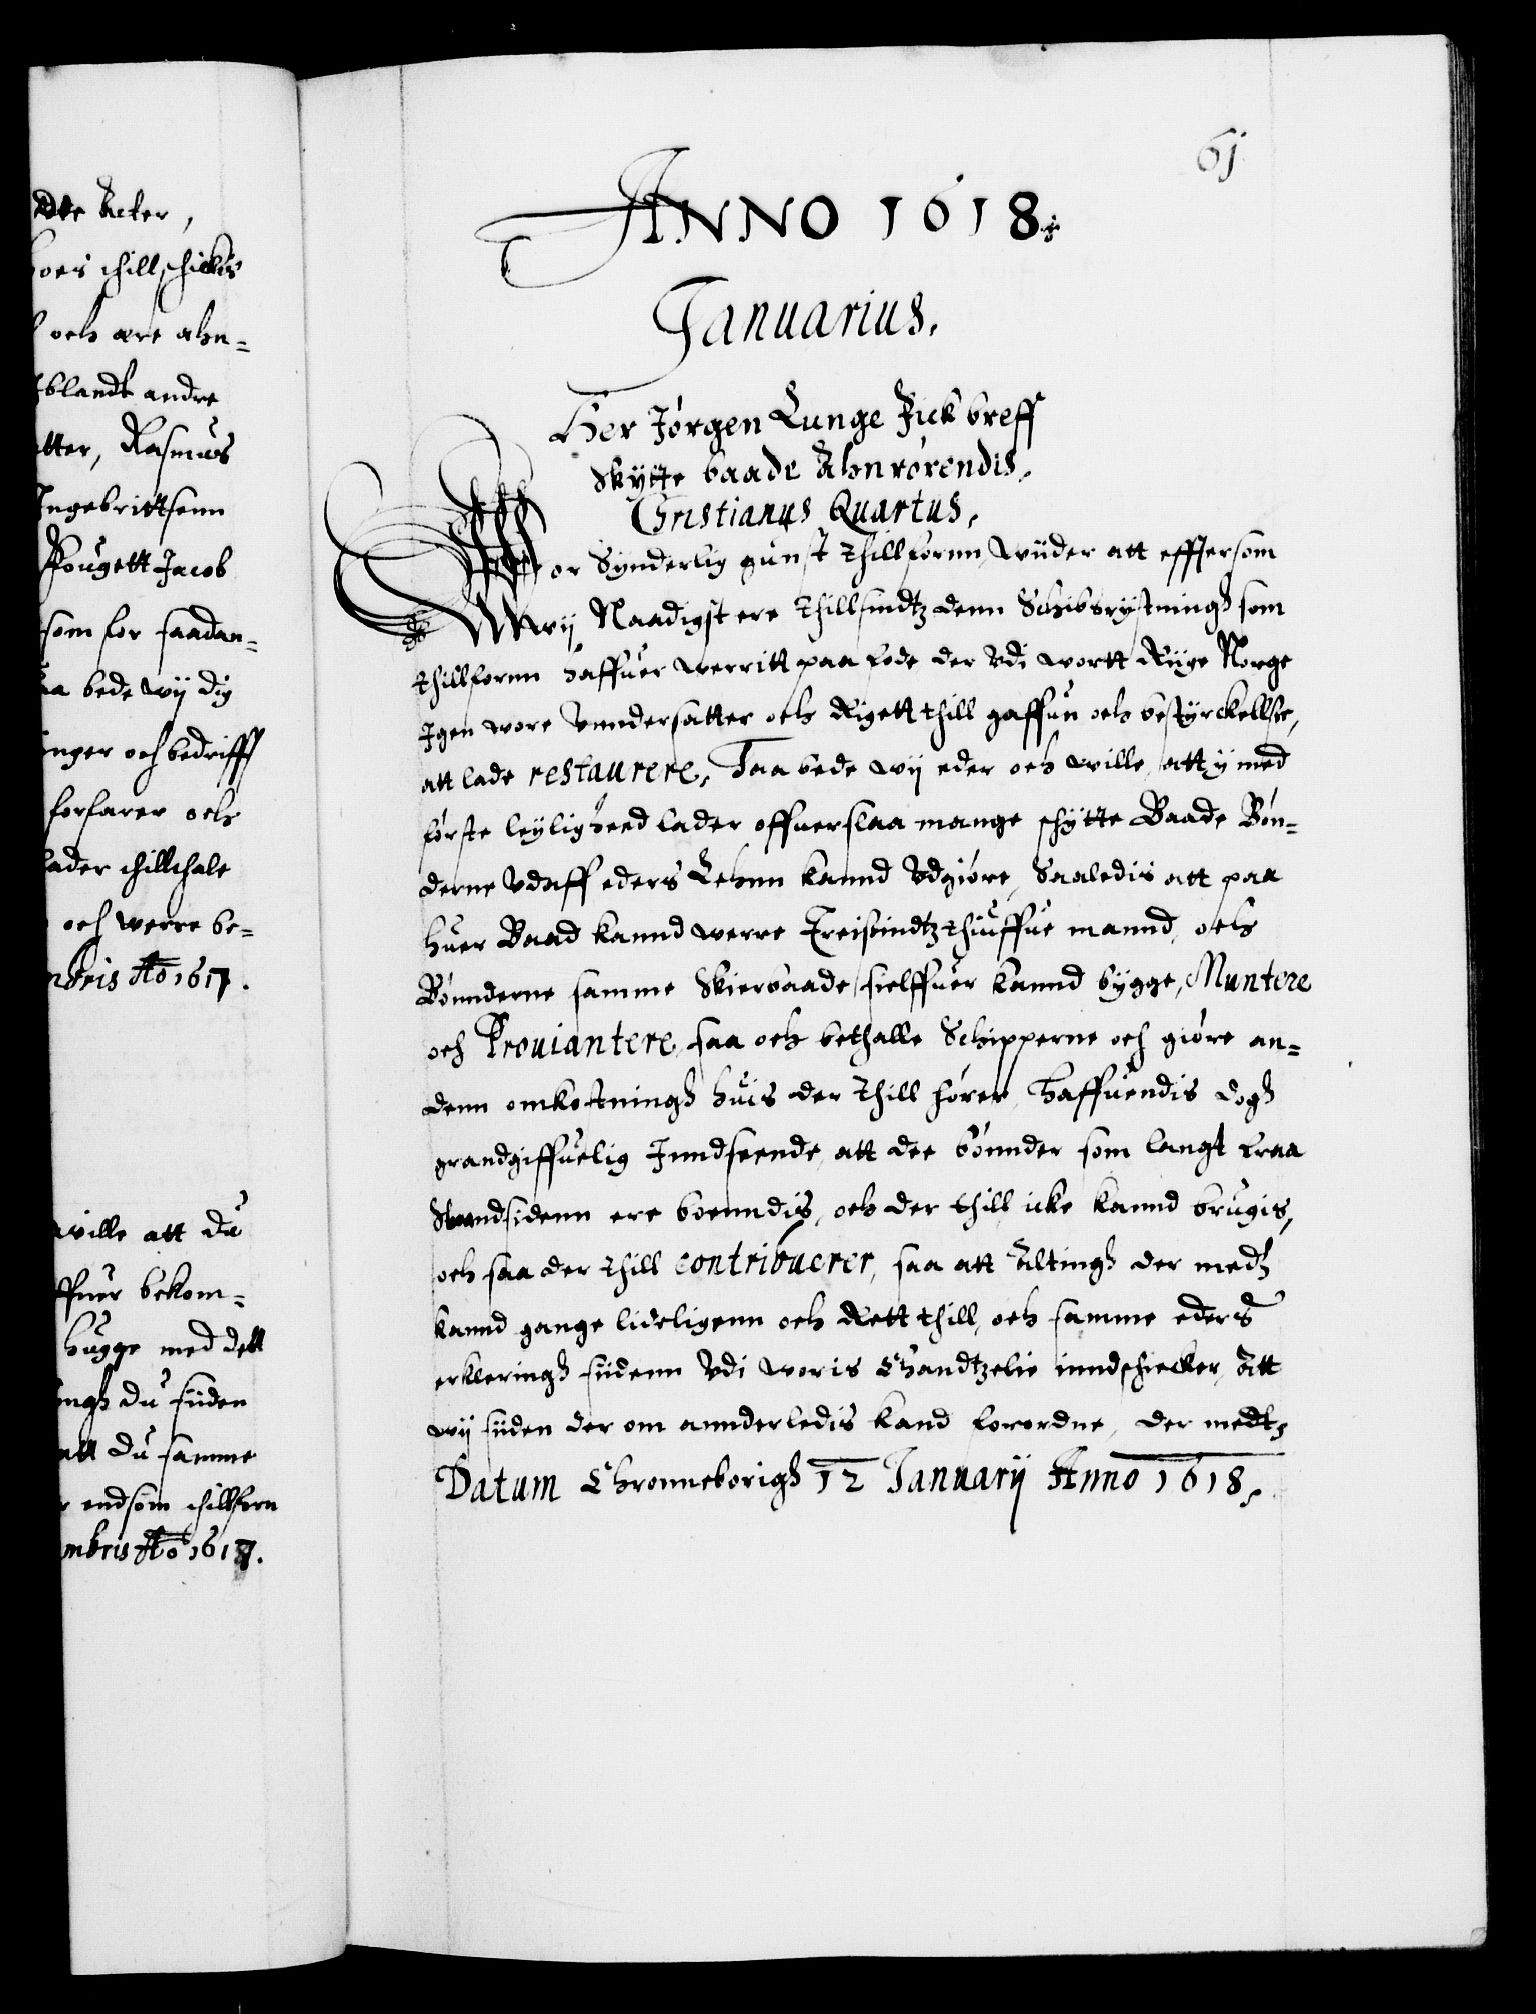 dtte Acter,
hoes thillschicks
och ere ahn-
Iblandt andre
tter, Rasmus
Ingebrittsenn
Fougett Jacob
som for saadan-
aa bede wij dig
inger och bedrifft
forfarer och
lader thillthale
och werre be-
mbris Ao 1617.
wille att du
ffuer bekom-
hugge med dett
ingh du siiden
att du samme
r endsom thillforn
mbris Ao 1617.
61
ANNO 1618.
Januarius.
Her Jørgen Lunge Fick breff
Skytte baade Ahnrørendis.
Christianus Quartus.
Wor Synderlig gunst thillfornn, wiider att effttersom
Wij Naadigst ere thillsindtz denn Schibsrystningh som
thillfornn haffuer werritt paa fode der Vdi wortt Riige Norge
Igen wore Vnndersatter och Rigett thill gaffun och bestyrckellse,
att lade restaurere, Taa bede wij eder och wille, att y med
første leyligheed lader offuerslaa mange schytte Baade Bøn-
derne Vdaff eders Lehnn kannd Vdgiøre, Saaledis att paa
huer Baad kannd werre Treisindtzthiuffue mannd, och
Bønnderne samme Skierbaade sielffuer kannd bygge, Muntere
och Prouiantere, saa och bethalle Schipperne och giøre an-
denn omkostningh huis der thill hører, Haffuendis dogh
grandgiffuelig Inndseende, att dee bønnder som langt fraa
Strandsidenn ere boenndis, och der thill icke kannd brugis,
och saa der thill contribuerer, saa att Altingh der medtz
kannd gange lideligenn och Rett thill, och samme eders
erkleringh siidenn Vdi woris Chandtzelie inndschicker, Att
wij siiden der om annderledis kand forordne, der medtz
Datum Chronneborigh 12 Januarij Anno 1618.